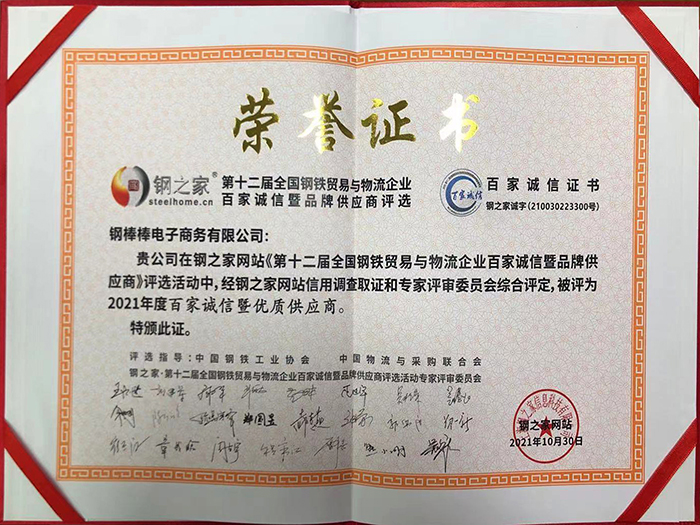 荣誉证书
钢之家®
steelhome.cn
第十二届全国钢铁贸易与物流企业
百家诚信暨品牌供应商评选
百家诚信
百家诚信证书
钢之家诚字(210030223300号)
钢棒棒电子商务有限公司：
贵公司在钢之家网站《第十二届全国钢铁贸易与物流企业百家诚信暨品牌供
应商》评选活动中，经钢之家网站信用调查取证和专家评审委员会综合评定，被评为
2021年度百家诚信暨优质供应商。
特颁此证。
评选指导：中国钢铁工业协会 中国物流与采购联合会
钢之家·第十二届全国钢铁贸易与物流企业百家诚信暨品牌供应商评选活动专家评审委员会
钢之家网站
2021年10月30日